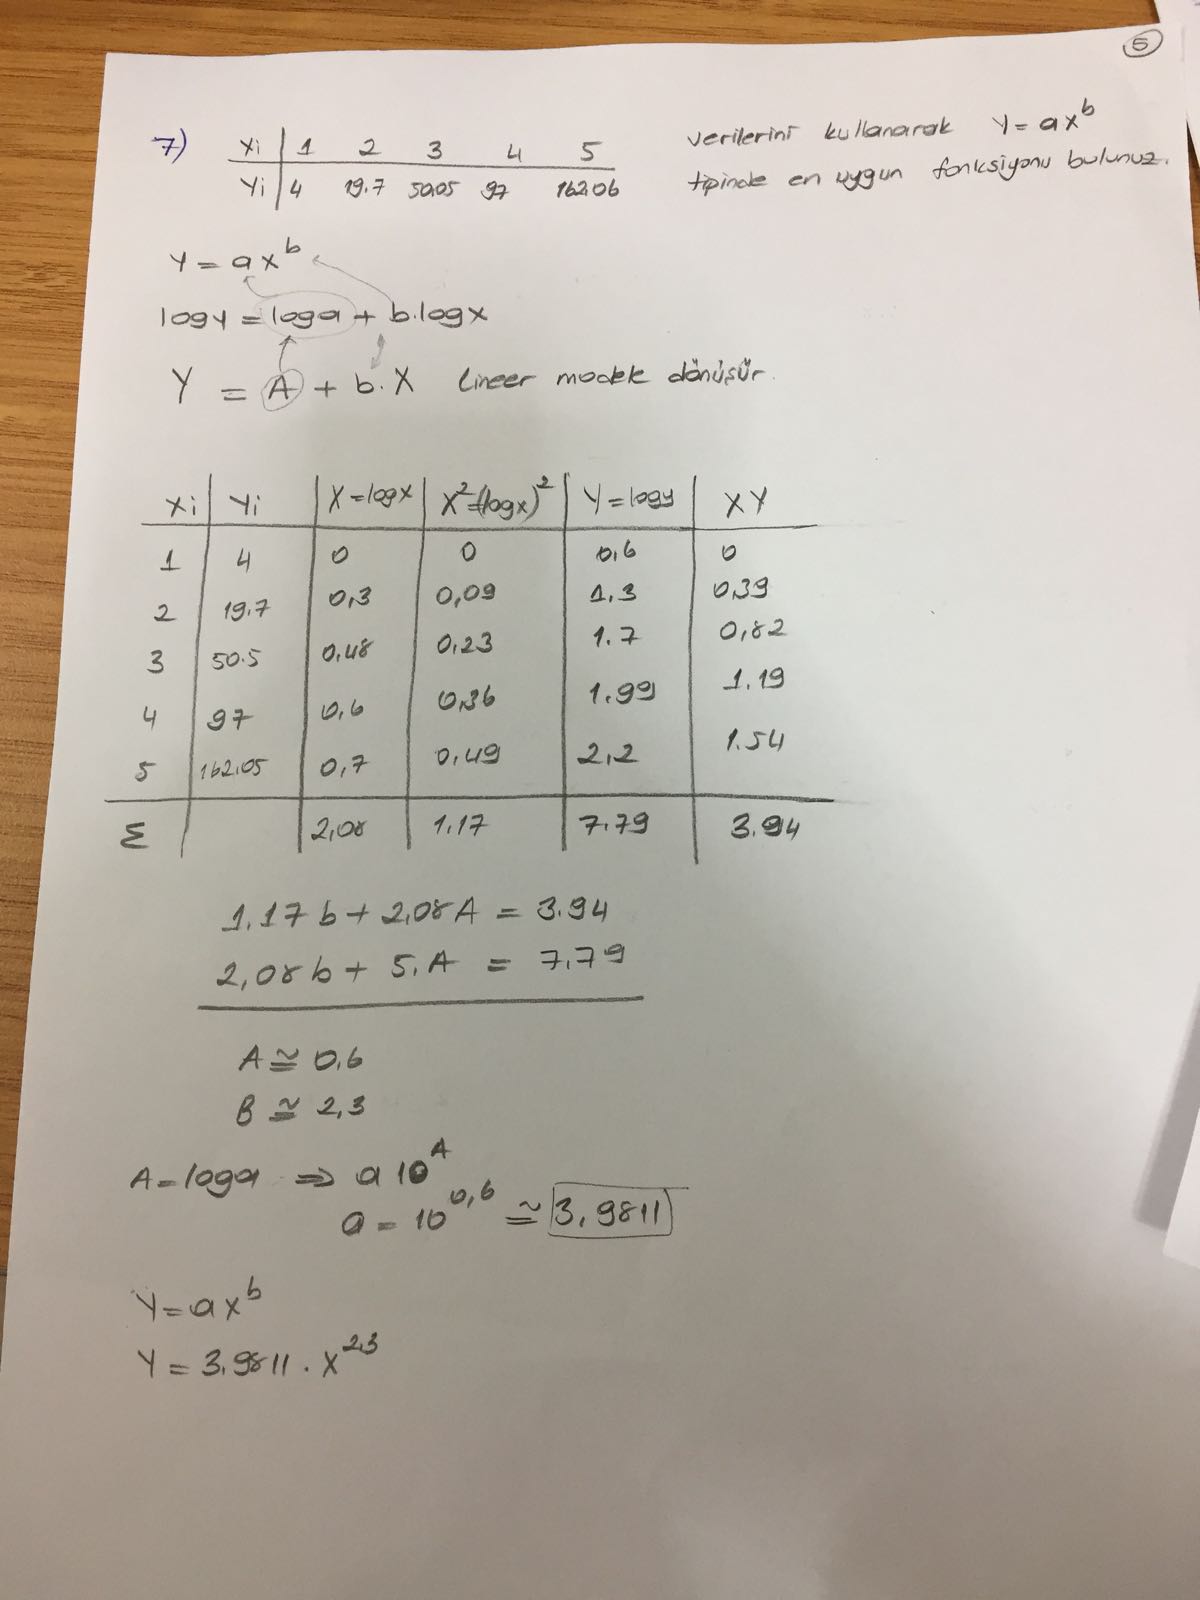 5
7) Xi | 1 2 3 4 5
Yi | 4 19.7 50.05 97 162.06
verilerini kullanarak Y = ax^b
tipinde en uygun fonksiyonu bulunuz.
Y = ax^b
logY = loga + b.logX
Y = A + b.X lineer modele dönüşür.
Xi | Yi | X = logx | X² = (logx)² | Y = logy | XY
1 | 4 | 0 | 0 | 0,6 | 0
2 | 19.7 | 0,3 | 0,09 | 1.3 | 0,39
3 | 50.5 | 0,48 | 0,23 | 1.7 | 0,82
4 | 97 | 0,6 | 0,36 | 1.99 | 1.19
5 | 162.05 | 0,7 | 0,49 | 2,2 | 1.54
Σ | | 2,08 | 1.17 | 7.79 | 3.94
1.17b + 2,08A = 3.94
2,08b + 5.A = 7,79
A ≅ 0,6
B ≅ 2,3
A = loga ⇒ a 10^A
a = 10^0,6 ≅ 3,9811
Y = ax^b
Y = 3.9811 . X^2,3